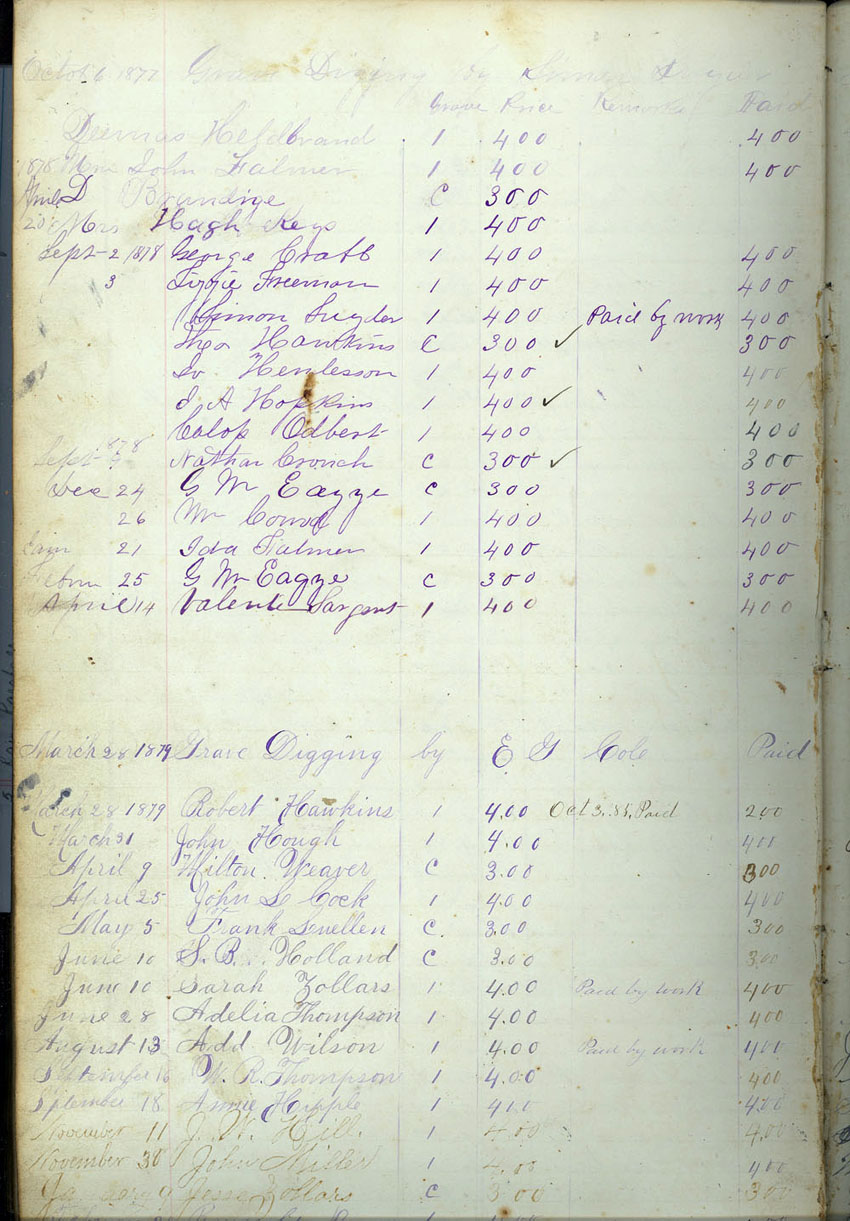 Octob 6 1877 Grave Digging by
Grave Price Remarks Paid
Deemas Heldbrand 1 400 400
1878 Mrs John Falmer 1 400 400
April D Brundige C 300
20 Mrs Hugh Keys 1 400
Sept 2 1878 George Cratt 1 400 400
3 Lizzie Freeman 1 400 400
Simon Snyder 1 400 Paid by work 400
Theo Hawkins C 300 ✓ 300
Henlesson 1 400 400
J A Hopkins 1 400 ✓ 400
Calop Odbert 1 400 400
Sept 1878 Nathan Crouch C 300 ✓ 300
Dec 24 G W Eagye C 300 300
26 Wm 1 400 400
21 Ida Falmer 1 400 400
25 G W Eagye C 300 300
April 14 Valente Sargent 1 400 400
March 28 1879 Grave Digging by E G Cole Paid
March 28 1879 Robert Hawkins 1 4.00 Oct 3. 85, Paid 200
March 31 John Hough 1 4.00 400
April 9 Milton Weaver C 3.00 300
April 25 John Le Cock 1 4.00 400
May 5 Frank Lewellen C 3.00 300
June 10 S. B. Holland C 3.00 300
June 10 Sarah Zollars 1 4.00 Paid by work 400
June 28 Adelia Thompson 1 4.00 400
August 13 Add Wilson 1 4.00 Paid by work 400
September 16 W. R. Thompson 1 4.00 400
September 18 Annie Hipple 1 400 4.00
November 11 J. W. Hill. 1 4.00 4.00
November 30 John Miller 1 4.00 400
January 9 Jesse Zollars C 3 00 300